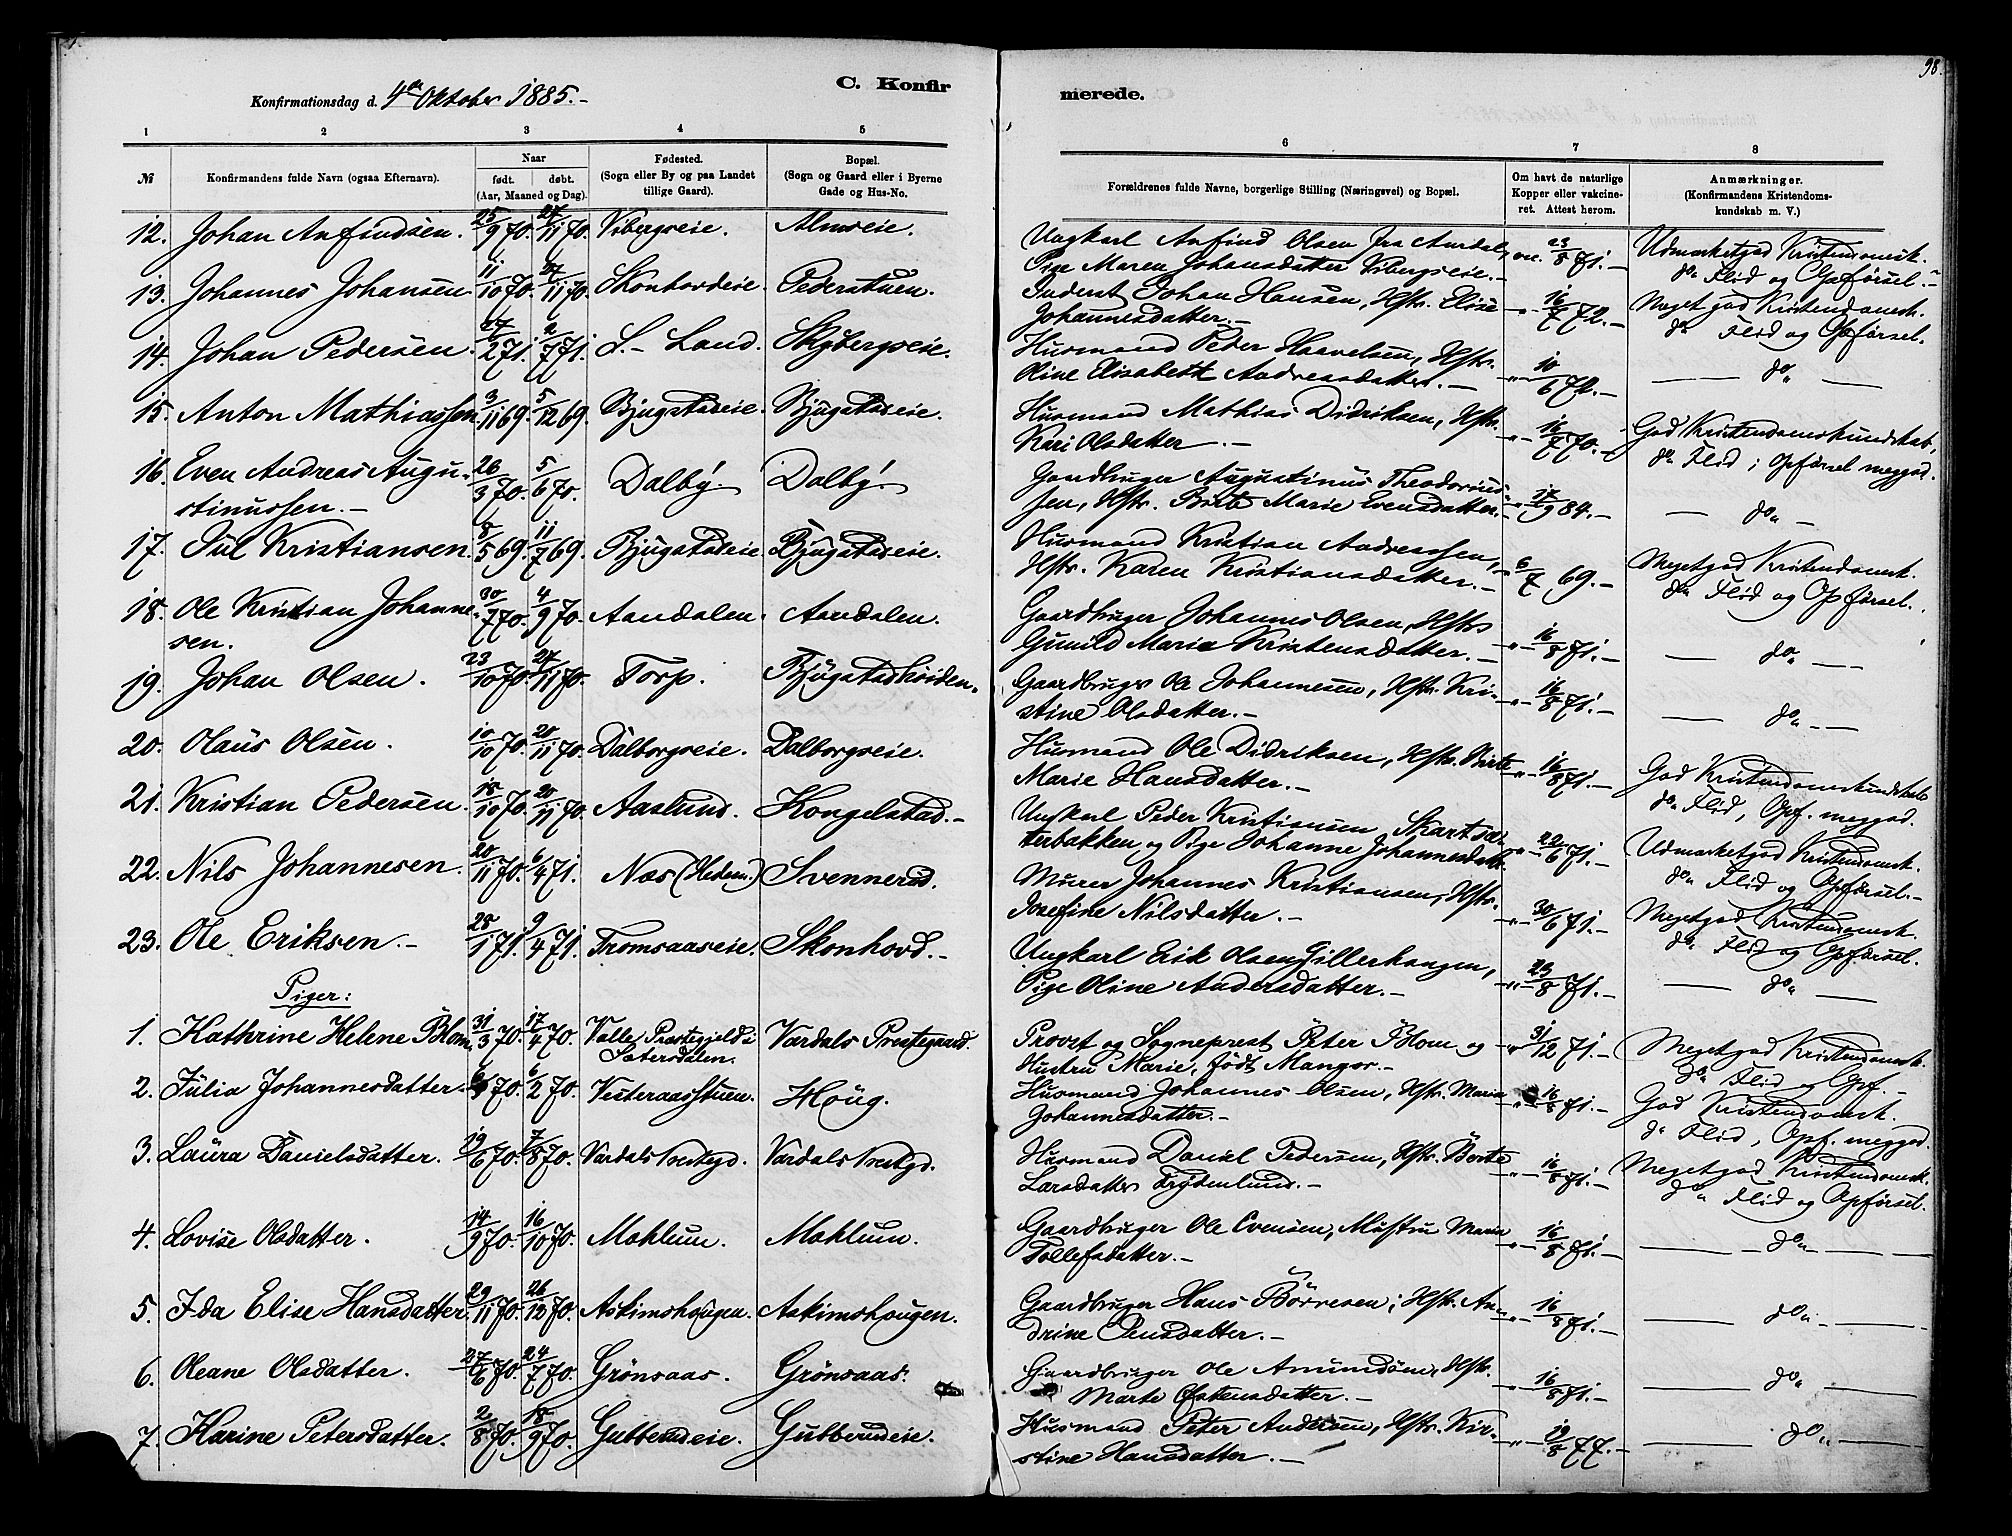 98.
Konfirmationsdag d. 4de Oktober 1885.-
C. Konfir
merede.
1 2 3 4 5 6 7 8
№
Konfirmandens fulde Navn (ogsaa Efternavn).
Naar
født. døbt.
(Aar, Maaned og Dag).
Fødested.
(Sogn eller By og paa Landet
tillige Gaard).
Bopæl.
(Sogn og Gaard eller i Byerne
Gade og Hus-No.
Forældrenes fulde Navne, borgerlige Stilling (Næringsvei) og Bopæl.
Om havt de naturlige
Kopper eller vakcine-
ret. Attest herom.
Anmærkninger.
(Konfirmandens Kristendoms-
kundskab m. V.)
12. Johan Anfindsen. 25/9 70. 27/11 70. Vibergseie. Almseie. Ungkarl Anfind Olsen fra Aurdal, vac. 23/8 71.- Udmerketgod Kristendomsk.
Pige Maren Johansdatter Vibergseie.- do Flid og Opførsel.-
13. Johannes Johansen 11/10 70. 27/11 70. Skonhovdeie. Pederstuen. Inderst Johan Hansen, Hstr. Elise -"- 16/7 72.- Meget god Kristendomsk.
Johannesdatter.- do Flid og Opførsel.
14. Johan Pedersen. 27/2 71. 2/7 71. S.- Land. Skybergseie. Husmand Peder Haavelsen, Hstr. -"- 10/6 72.- do
Oline Elisabeth Andreasdatter.-
15. Anton Mathiassen 3/11 69. 5/12 69. Bjugstadeie. Bjugstadeie. Husmand Mathias Didriksen, Hstr. -"- 16/7 70.- God Kristendomskundskab,
Kari Olsdatter.- do Flid; Opførsel meggod.
16. Even Andreas Augu- 26/3 70. 5/6 70. Dalby. Dalby. Gaardbruger Augustinus Theodorius- -"- 17/9 84.- do
stinussen.- sen, Hstr. Berte Marie Evensdatter.-
17. Jul Kristiansen. 8/5 69. 11/7 69. Bjugstadeie. Bjugstadeie. Husmand Kristian Andreassen, -"- 6/7 69.- Megetgod Kristendomsk.
Hstr. Karen Kristiansdatter.- do Flid og Opførsel.
18. Ole Kristian Johanne- 30/7 70. 4/9 70. Aandalen. Aandalen. Gaardbruger Johannes Olsen, Hstr. -"- 16/8 71.- do
sen. Gunild Marie Kristensdatter.-
19. Johan Olsen. 23/10 70. 27/11 70. Torp. Bjugstadhöiden. Gaardbruger Ole Johannesen, Hstr. Kri- -"- 16/8 71.- do
stine Olsdatter.-
20. Olaus Olsen. 10/10 70. 20/11 70. Dalborgseie. Dalborgseie. Husmand Ole Didriksen, Hstr. Birte -"- 16/8 71.- God Kristendomskundskab
Marie Hansdatter.- do Flid, Opf. meggod.
21. Kristian Pedersen. 18/10 70. 20/11 70. Aaslund. Kongelstad.- Ungkarl Peder Kristiansen Skartsæ- -"- 22/6 71.- Udmerketgod Kristendomsk.
terbakken og Pige Johanne Johannesdatt. do Flid og Opførsel.-
22. Nils Johannesen. 20/11 70. 6/4 71. Næs (Hedem.) Svennerud. Murer Johannes Kristiansen, Hstr. -"- 30/6 71.- Megetgod Kristendomsk.
Josefine Nilsdatter.- do Flid og Opførsel.
23. Ole Eriksen.- 28/1 71. 9/4 71. Tromsaaseie. Skonhovd.- Ungkarl Erik Olsen Gillerhaugen, -"- 23/8 71.- do
Pige Oline Andersdatter.-
Piger:
1. Kathrine Helene Blom. 31/3 70. 17/4 70. Valle Præstegjeld i Vardals Prestegaard. Provst og Sogneprest Peter Blom og " 31/12 71.- Megetgod Kristendomsk.
Sætersdalen. Hustru Marie, født Mangor.- do Flid og Opf.-
2. Julia Johannesdatter. 70. 6/2 70. Vesteraasstuen. Höug. Husmand Johannes Olsen, Hstr. Maria -"- 16/8 71.- God Kristendomsk.
Johannesdatter.- do Flid, Opf. meggod.
3. Laura Danielsdatter. 19/6 70. 7/8 70. Vardals Prestegd. Vardals Prestgd. Husmand Daniel Pedersen, Hstr. Berte -"- 16/8 71.- Megetgod Kristendomsk.
Larsdatter Frydenlund.- do Flid og Opførsel.
4. Lovise Olsdatter. 14/9 70. 16/10 70. Mahlum. Mahlum. Gaardbruger Ole Evensen, Hustru Maria -"- 16/8 71.- do
Tollefsdatter.-
5. Ida Elise Hansdatter. 29/11 70. 26/12 70. Askimshougen. Askimshougen. Gaardbruger Hans Börresen; Hstr. An- -"- 16/8 71.- do
drine Jensdatter.-
6. Oleane Olsdatter. 27/6 70. 24/7 70. Grönsaas. Grönsaas. Gaardbruger Ole Amundsen, Hstr. -"- 16/8 71.- do
Marte Østensdatter.-
7. Karine Petersdatter. 2/8 70. 18/9 70. Gubberudeie. Gubberudeie. Husmand Peter Andersen, Hstr. Kir- -"- 19/8 77.- do
stine Hansdatter.-